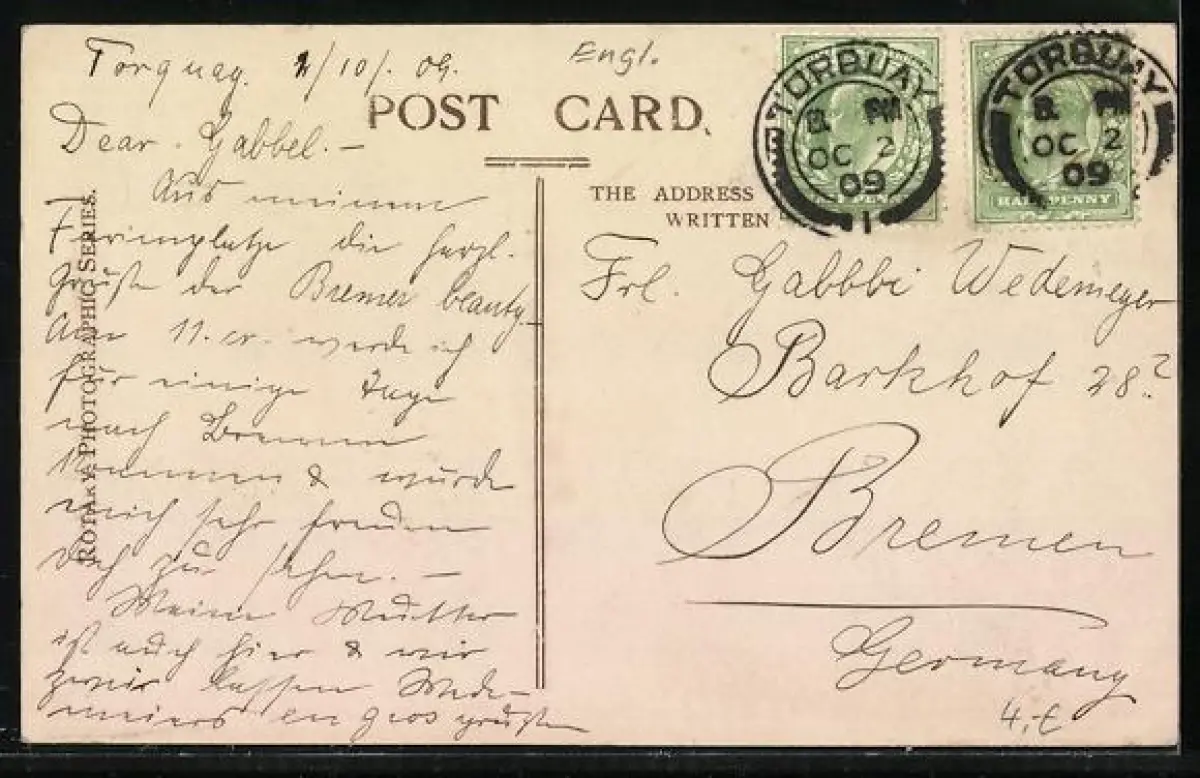 Torquay. 2/10/. 09.
Engl.
POST CARD.
Dear Gabbel. –
Aus meinem
Ferienplatze die herzl.
Grüße der Bremer beauty. –
Am 11. cr. werde ich
für einige Tage
nach Bremen
kommen & würde
mich sehr freuen
Dich zu sehen. –
Meine Mutter
ist auch hier & wir
lassen Wede-
meiers en gros grüßen
ROTARY PHOTOGRAPHIC SERIES.
THE ADDRESS
WRITTEN
TORQUAY
8. PM
OC 2
09
1
TORQUAY
8. PM
OC 2
09
HALFPENNY
Frl. Gabbbi Wedemeyer
Barkhof 28?
Bremen
Germany
4,-€